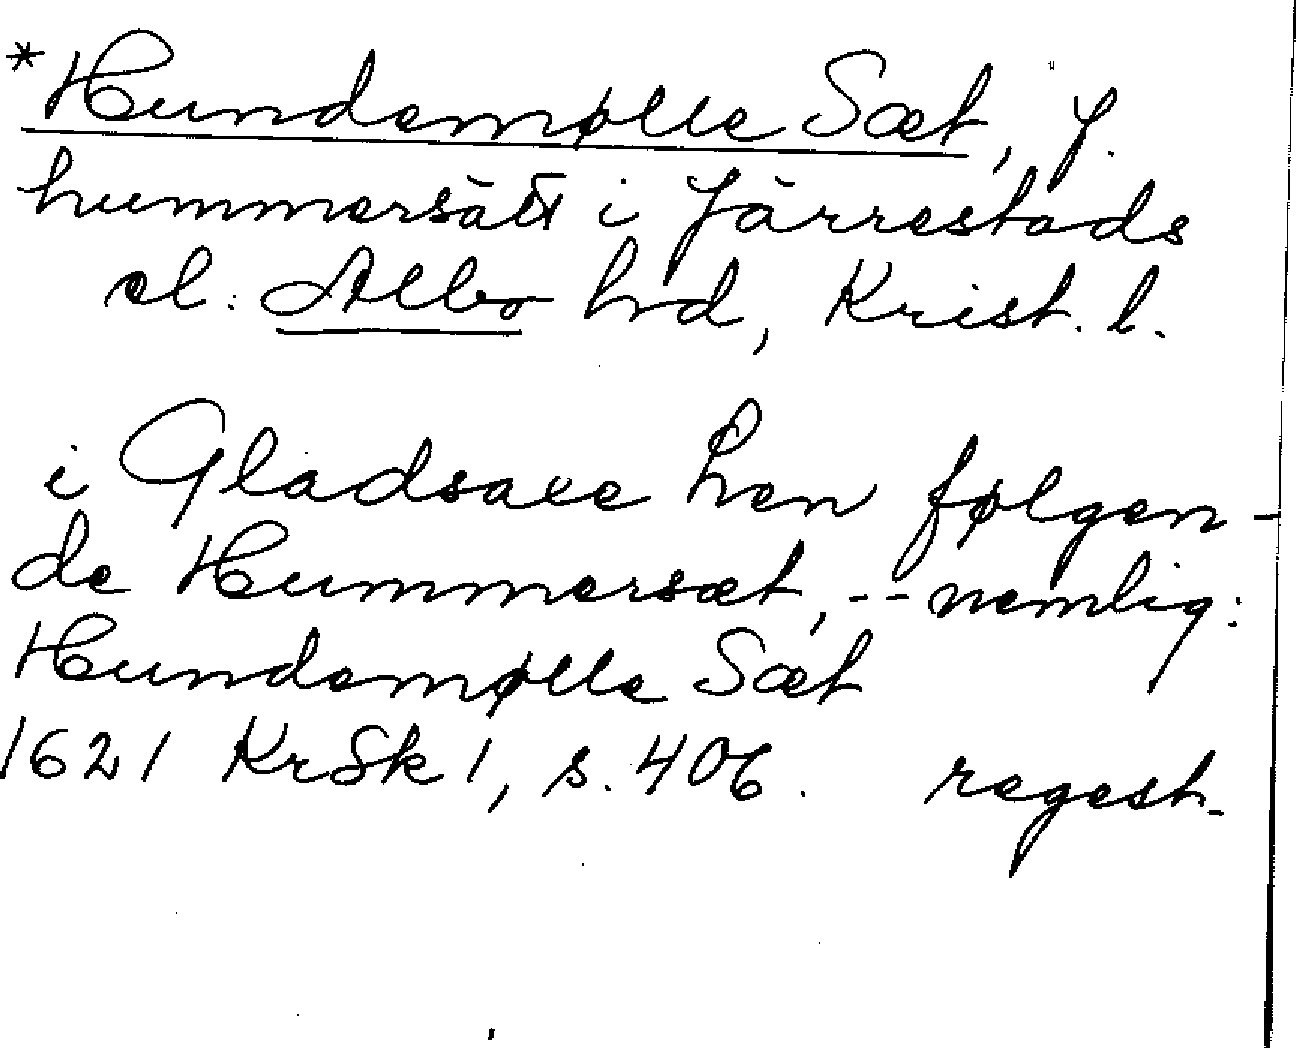 *Hundemølle Sæt, f.
hummersätt i Järrestads
el. Albo hrd, Krist. l.
i Gladsaxe Len følgen-
de Hummersæt, -- nemlig:
Hundemølle Sæt
1621 KrSk 1, s. 406. regest.